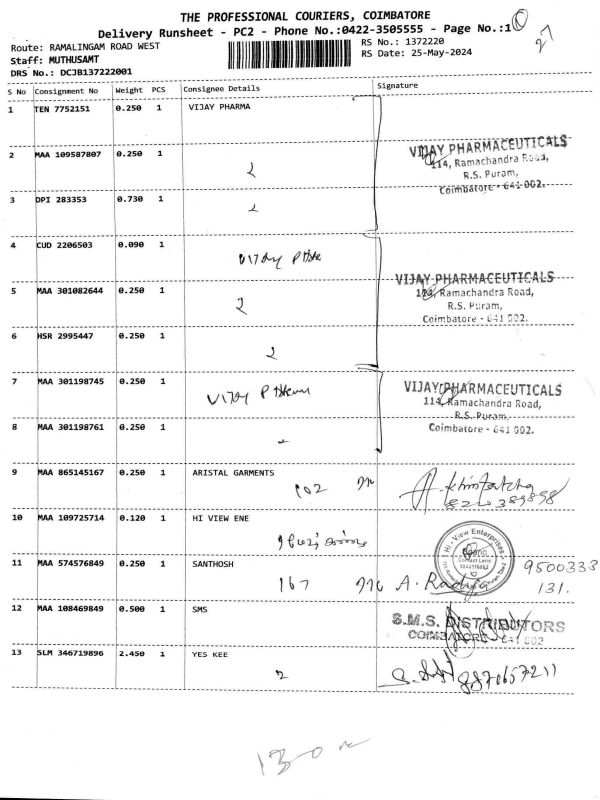 THE PROFESSIONAL COURIERS, COIMBATORE
Delivery Runsheet - PC2 - Phone No.:0422-3505555 - Page No.:1
27
Route: RAMALINGAM ROAD WEST
RS No.: 1372220
Staff: MUTHUSAMT
RS Date: 25-May-2024
DRS No.: DCJB137222001
S No Consignment No Weight PCS Consignee Details Signature
1 TEN 7752151 0.250 1 VIJAY PHARMA
2 MAA 109587807 0.250 1
VIJAY PHARMACEUTICALS
114, Ramachandra Road,
R.S. Puram,
Coimbatore - 641 002.
3 DPI 283353 0.730 1
4 CUD 2206503 0.090 1
VIJAY PHARMACEUTICALS
114, Ramachandra Road,
R.S. Puram,
Coimbatore - 641 002.
5 MAA 301082644 0.250 1
6 HSR 2995447 0.250 1
7 MAA 301198745 0.250 1
VIJAY PHARMACEUTICALS
114, Ramachandra Road,
R.S. Puram,
Coimbatore - 641 002.
8 MAA 301198761 0.250 1
9 MAA 865145167 0.250 1 ARISTAL GARMENTS
102
10 MAA 109725714 0.120 1 HI VIEW ENE
Hi - View Enterprises
11 MAA 574576849 0.250 1 SANTHOSH
167
A. Radija
9500333
131.
12 MAA 108469849 0.500 1 SMS
S.M.S. DISTRIBUTORS
COIMBATORE - 641 002
13 SLM 346719896 2.450 1 YES KEE
8870657211
130